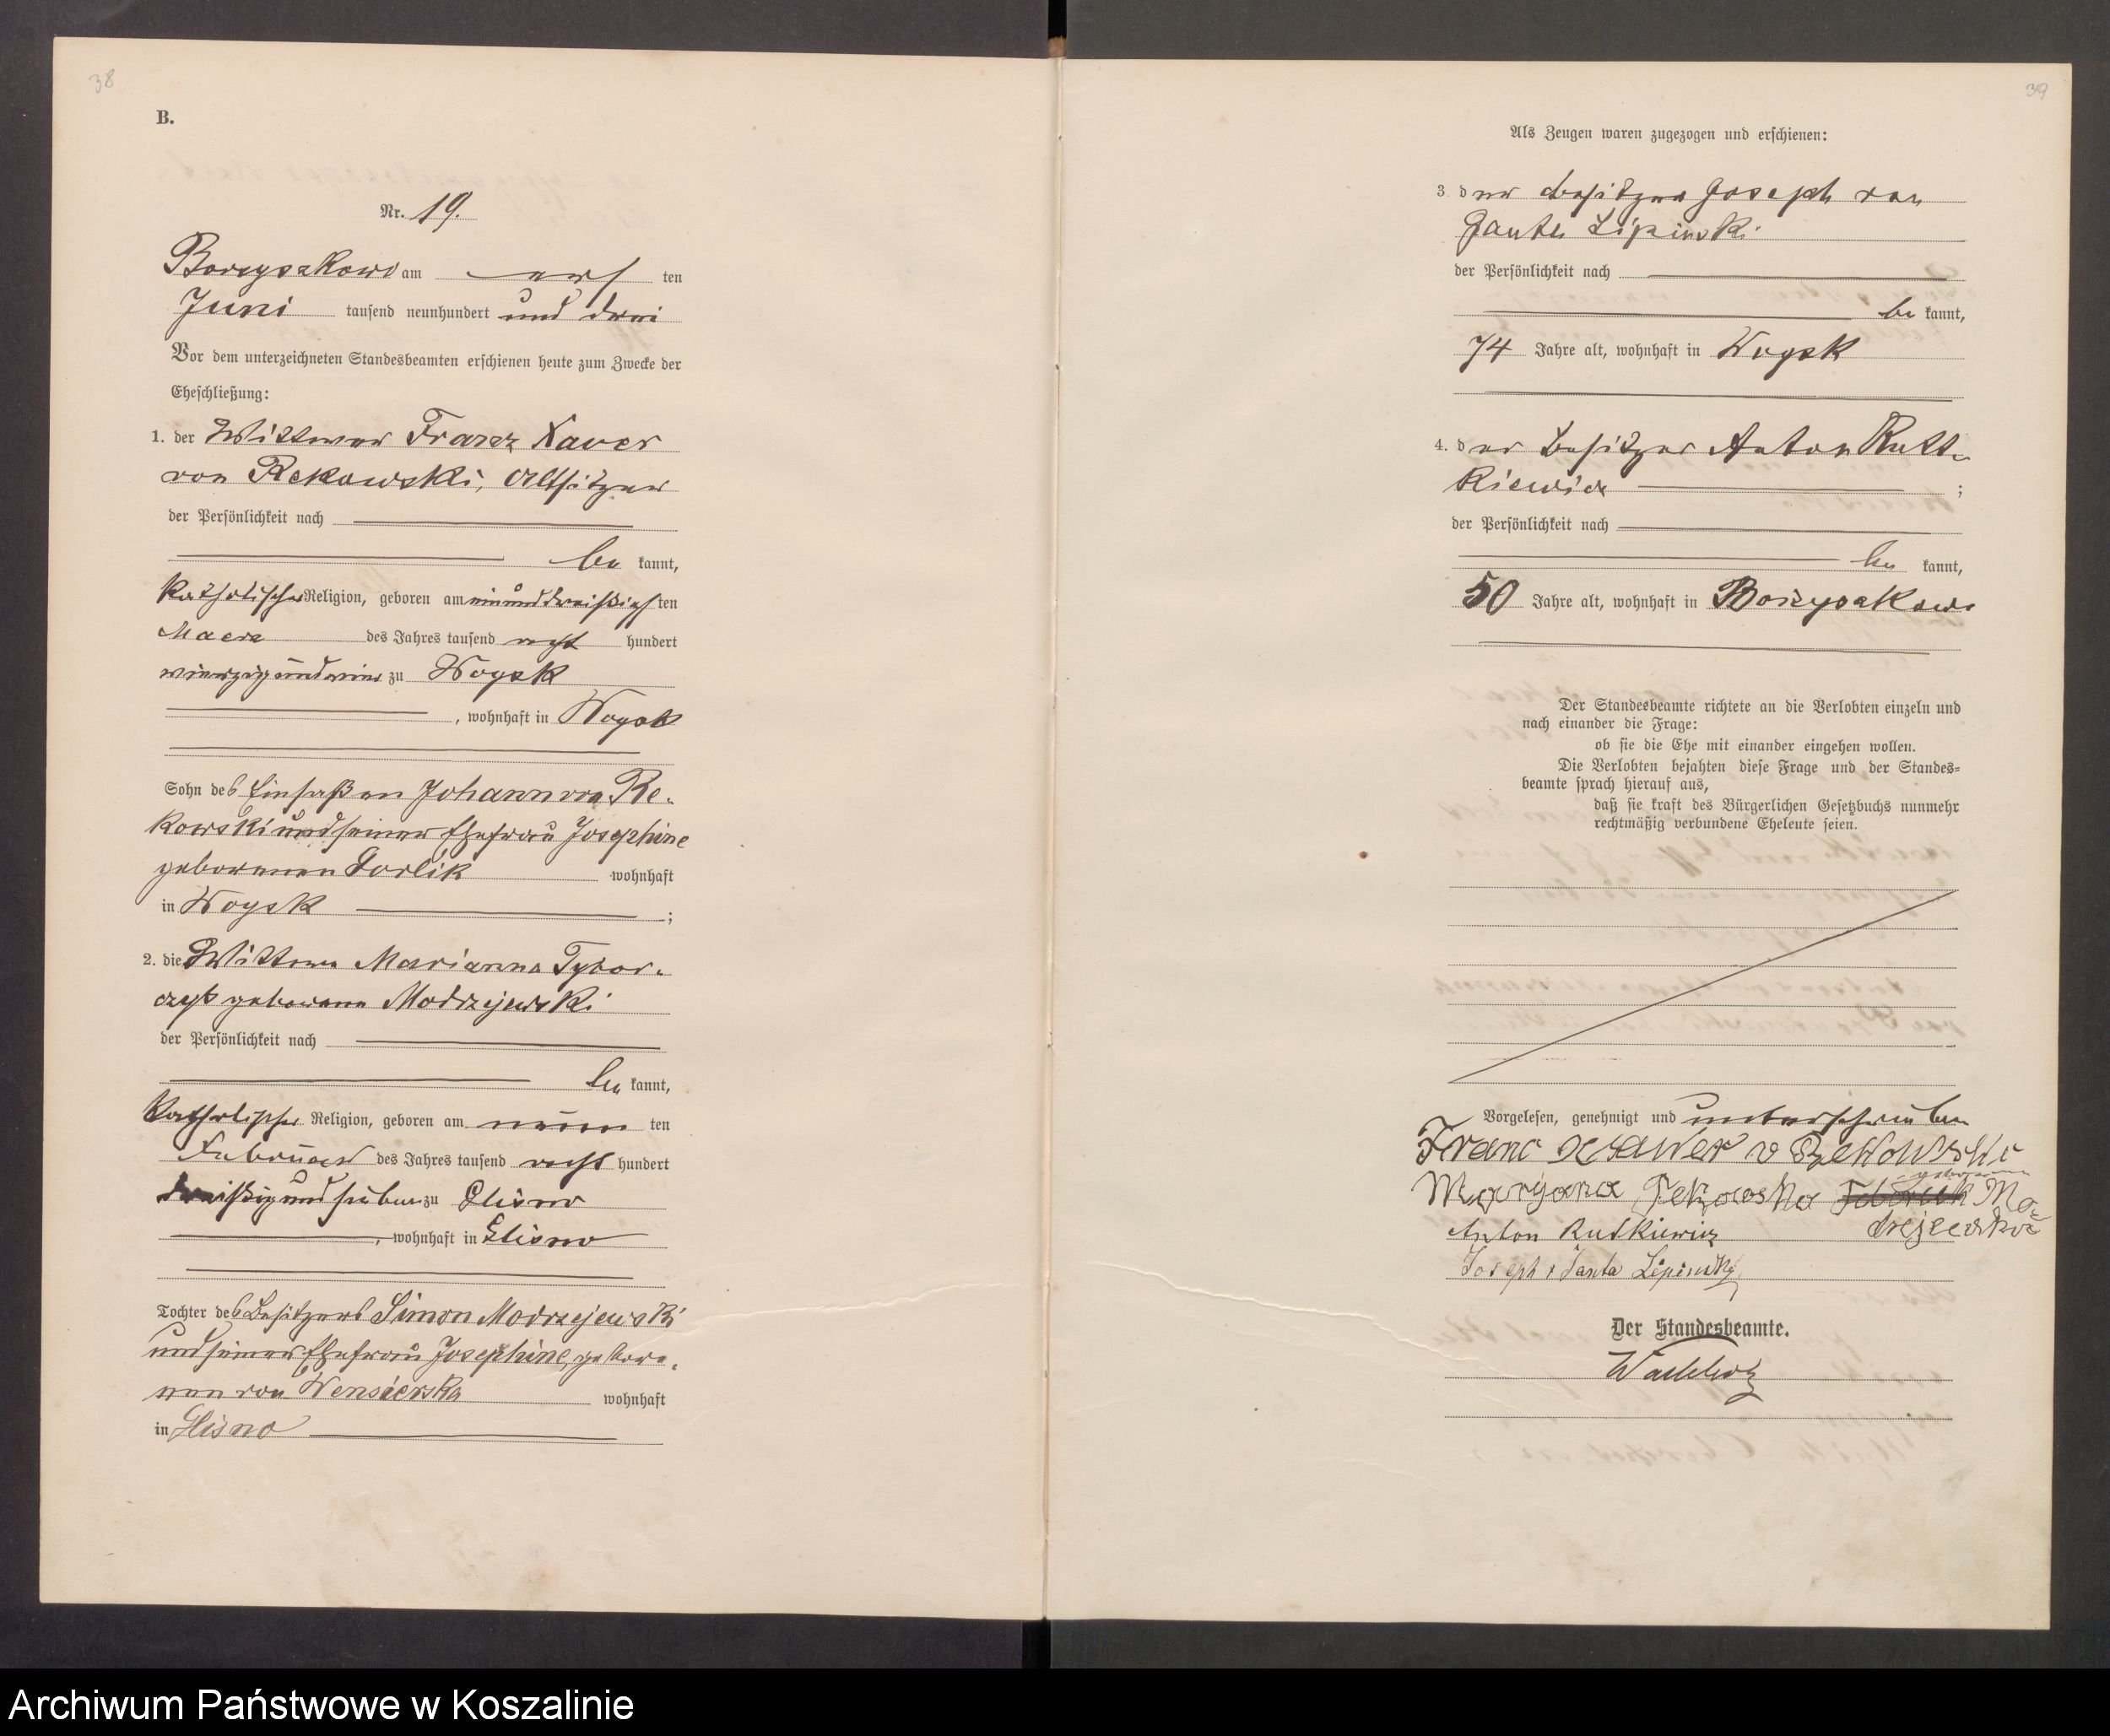 38
B.
Nr. 19.
Borzyszkowo am erst ten
Juni tausend neunhundert und drei
Vor dem unterzeichneten Standesbeamten erschienen heute zum Zwecke der
Eheschließung:
1. der Wittwer Franz Xaver
von Rekowski, Altsitzer
der Persönlichkeit nach
be kannt,
katholischer Religion, geboren am einunddreißigsten
Maerz des Jahres tausend acht hundert
vierzigundeins zu Wogsk
, wohnhaft in Wogsk
Sohn des Einsaßen Johann von Re-
kowski und seiner Ehefrau Josephine
geborenen Gorlik wohnhaft
in Wogsk ;
2. die Wittwe Marianna Tybor-
czyk geborene Modrzejewski
der Persönlichkeit nach
be kannt,
katholischer Religion, geboren am neun ten
Februar des Jahres tausend acht hundert
dreißigundsieben zu Glisno
, wohnhaft in Glisno
Tochter des Besitzers Simon Modrzejewski
und seiner Ehefrau Josephine, gebore-
nen von Wensierska wohnhaft
in Glisno
39
Als Zeugen waren zugezogen und erschienen:
3. der Besitzer Joseph von
Janta Lipinski
der Persönlichkeit nach
be kannt,
74 Jahre alt, wohnhaft in Wogsk
4. der Besitzer Anton Rutt-
kiewicz ;
der Persönlichkeit nach
be kannt,
50 Jahre alt, wohnhaft in Borzyszkowo
Der Standesbeamte richtete an die Verlobten einzeln und
nach einander die Frage:
ob sie die Ehe mit einander eingehen wollen.
Die Verlobten bejahten diese Frage und der Standes=
beamte sprach hierauf aus,
daß sie kraft des Bürgerlichen Gesetzbuchs nunmehr
rechtmäßig verbundene Eheleute seien.
Vorgelesen, genehmigt und unterschrieben
Franc Xsawer v Rekowski
geborene
Maryana Rekowska Mo-
drzejewska
Anton Rutkiewicz
Joseph v Janta Lipinski
Der Standesbeamte.
Archiwum Państwowe w Koszalinie